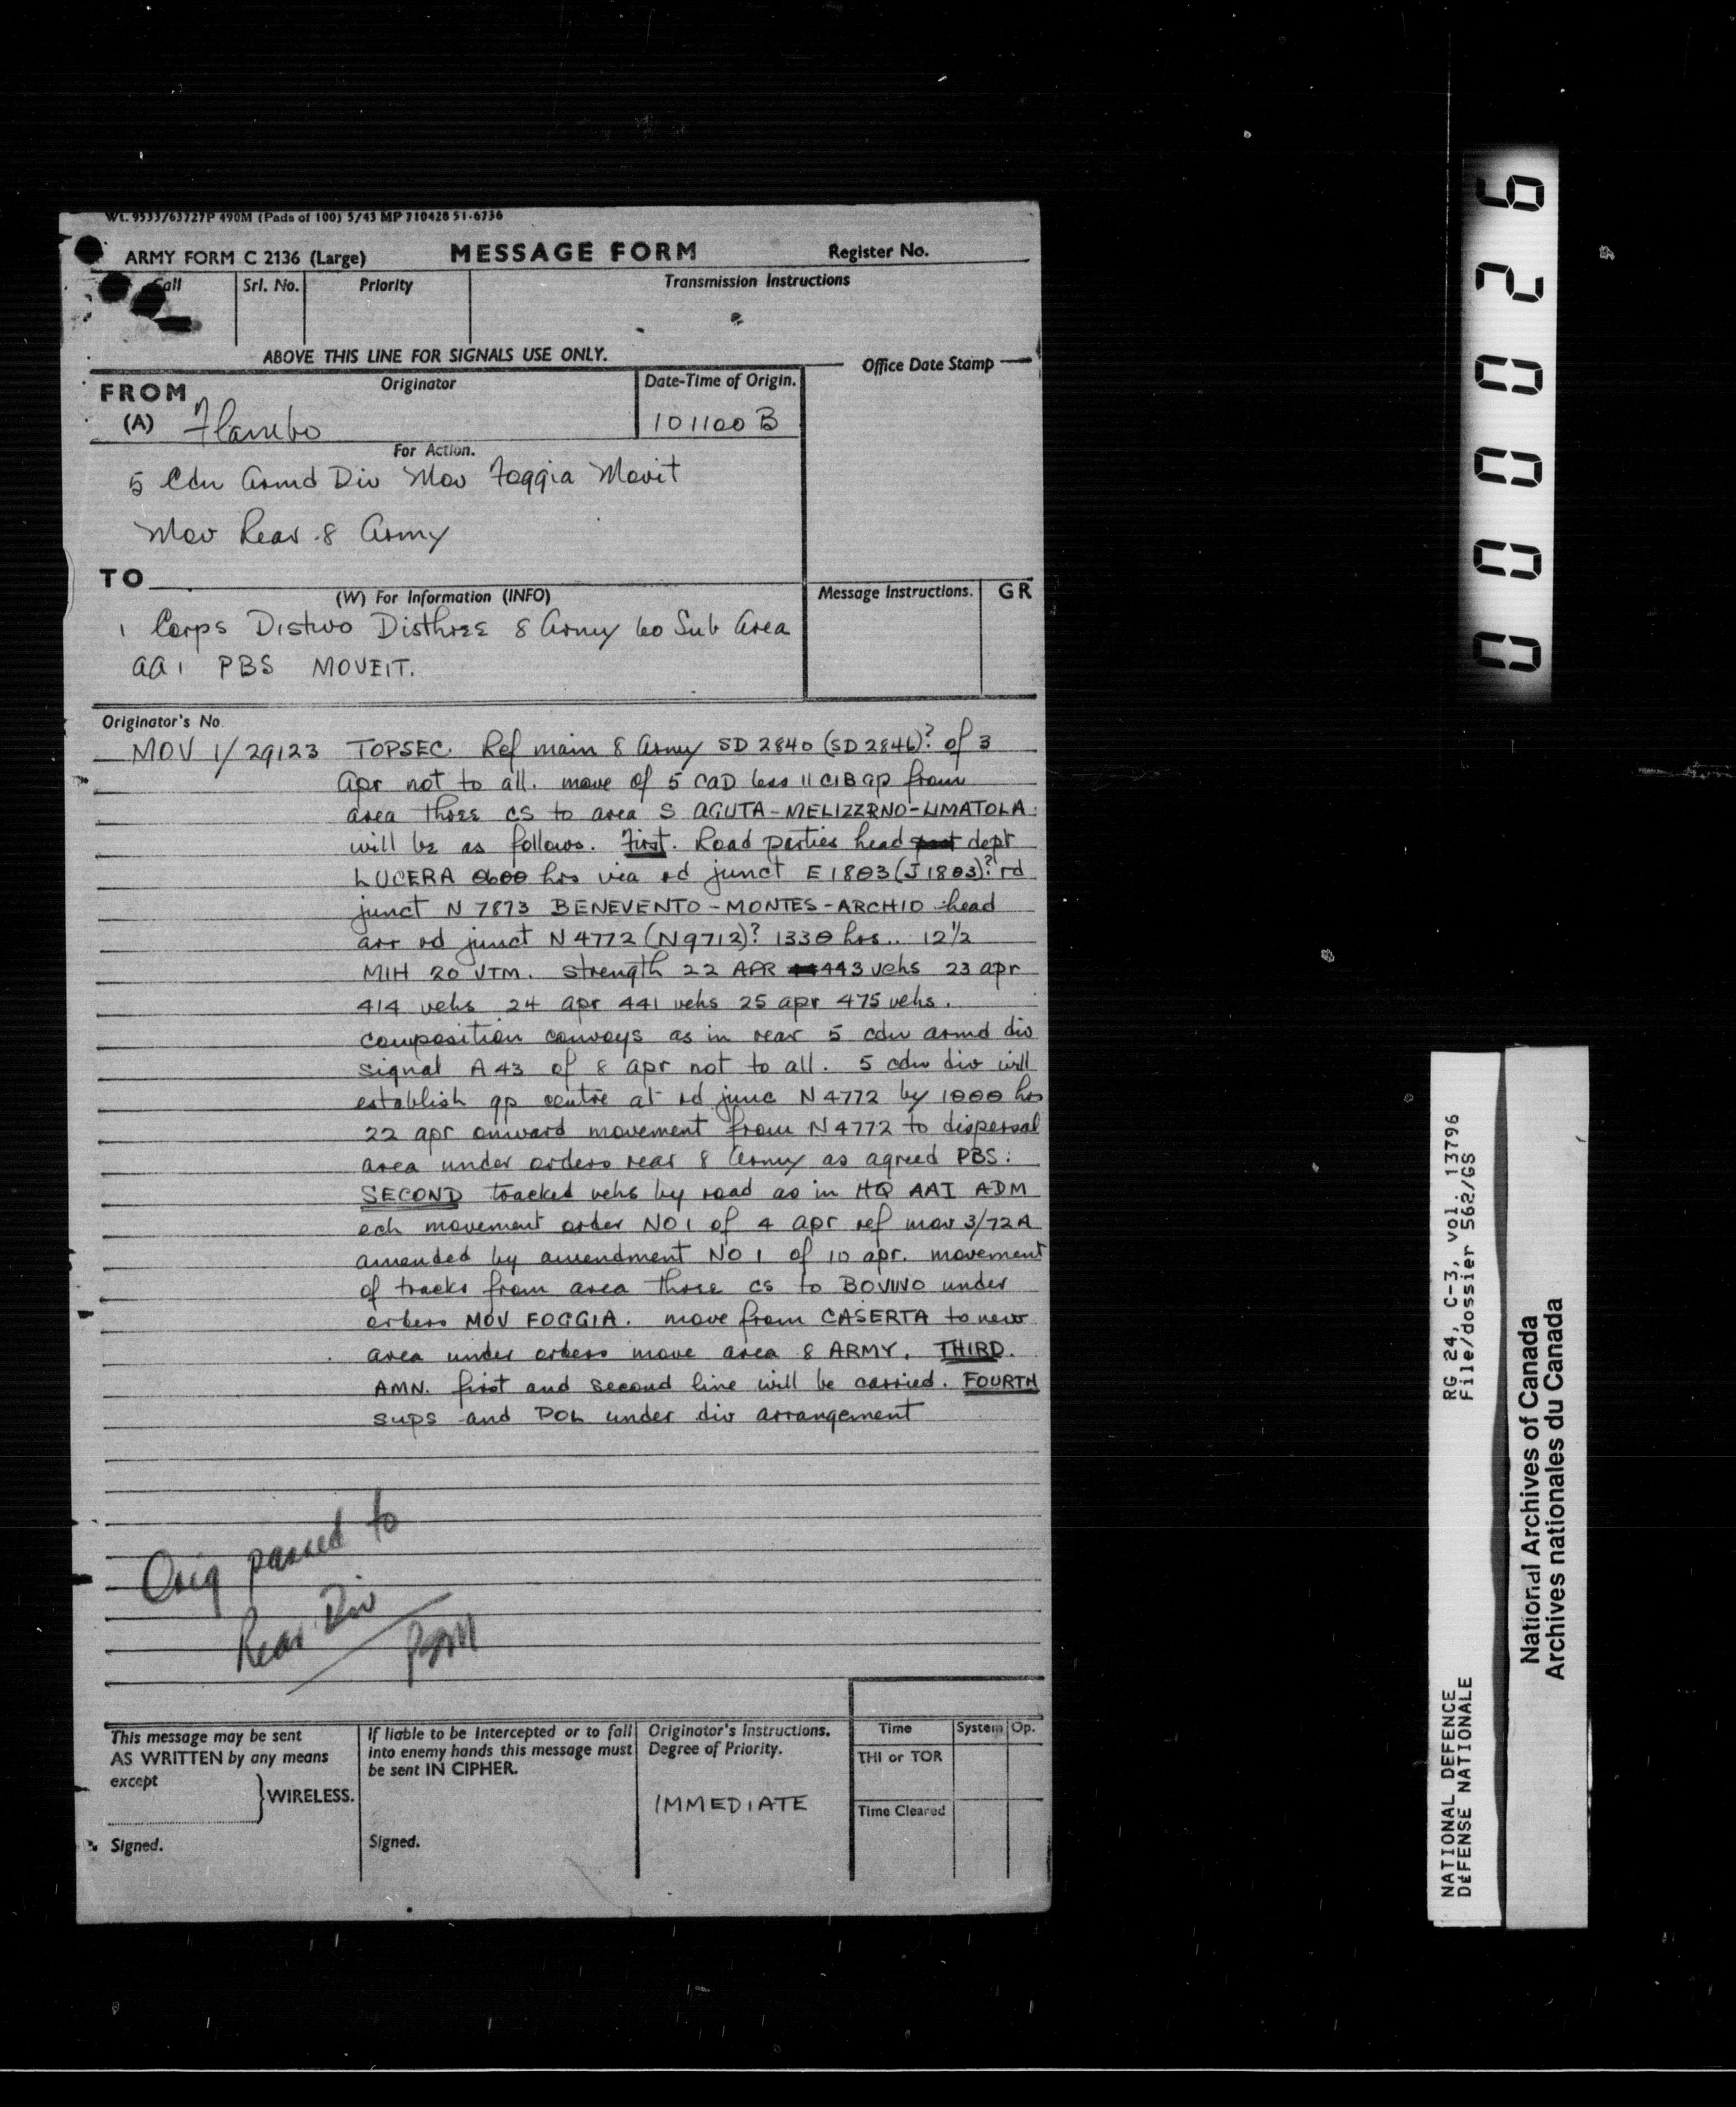 Wt. 9533/63727P 490M (Pads of 100) 5/43 MP 710428 51-6736
ARMY FORM C 2136 (Large) MESSAGE FORM Register No.
Call Srl. No. Priority Transmission Instructions
ABOVE THIS LINE FOR SIGNALS USE ONLY.
Office Date Stamp
FROM Originator Date-Time of Origin.
(A) Flambo 101100 B
For Action.
5 Cdn Armd Div Mov Foggia Movit
Mov Rear 8 Army
TO
(W) For Information (INFO) Message Instructions. GR
1 Corps Distwo Disthree 8 Army 60 Sub Area
AAI PBS MOVEIT.
Originator's No.
MOV 1/29123 TOPSEC. Ref main 8 Army SD 2840 (SD 2846)? of 3
Apr not to all. move of 5 CAD less 11 CIB gp from
area three CS to area S AGUTA-MELIZZRNO-LIMATOLA.
will be as follows. First. Road parties head dept
LUCERA 0600 hrs via rd junct E1803 (J1803)? rd
junct N 7873 BENEVENTO-MONTES-ARCHIO head
arr rd junct N4772 (N9712)? 1330 hrs.. 12½
MIH 20 VTM. strength 22 APR 443 vehs 23 apr
414 vehs 24 apr 441 vehs 25 apr 475 vehs.
composition convoys as in rear 5 cdn armd div
signal A43 of 8 apr not to all. 5 cdn div will
establish gp centre at rd junc N4772 by 1000 hrs
22 apr onward movement from N4772 to dispersal
area under orders rear 8 Army as agreed PBS.
SECOND tracked vehs by road as in HQ AAI ADM
ech movement order NO1 of 4 apr ref mov 3/72A
amended by amendment NO 1 of 10 apr. movement
of tracks from area three cs to BOVINO under
orders MOV FOGGIA. move from CASERTA to new
area under orders move area 8 ARMY. THIRD.
AMN. first and second line will be carried. FOURTH
sups and POL under div arrangement
Orig passed to
Rear Div
This message may be sent
AS WRITTEN by any means
except
WIRELESS.
Signed.
If liable to be intercepted or to fall
into enemy hands this message must
be sent IN CIPHER.
Signed.
Originator's Instructions.
Degree of Priority.
IMMEDIATE
Time System Op.
THI or TOR
Time Cleared
000026
RG 24, C-3, vol. 13796
File/dossier 562/GS
NATIONAL DEFENCE
DÉFENSE NATIONALE
National Archives of Canada
Archives nationales du Canada